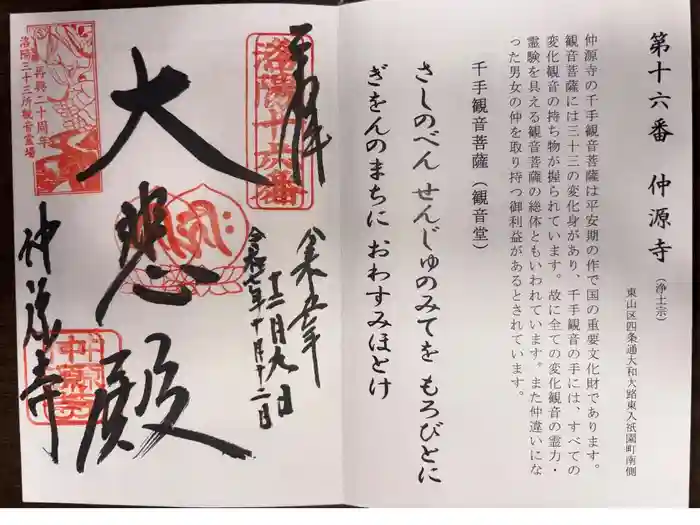 第十六番 仲源寺(浄土宗)
東山区四条通大和大路東入祇園町南側
仲源寺の千手観音菩薩は平安期の作で国の重要文化財であります。
観音菩薩には三十三の変化身があり、千手観音の手には、すべての
変化観音の持ち物が握られています。故に全ての変化観音の霊力・
霊験を具える観音菩薩の総体ともいわれています。また仲違いにな
った男女の仲を取り持つ御利益があるとされています。
千手観音菩薩(観音堂)
さしのべん せんじゅのみてを もろびとに
ぎをんのまちに おわすみほとけ
奉拝
洛陽十六番
大悲殿
十二月九日
令和七年十月十二日
仲源寺
再興二十周年
洛陽三十三所観音霊場